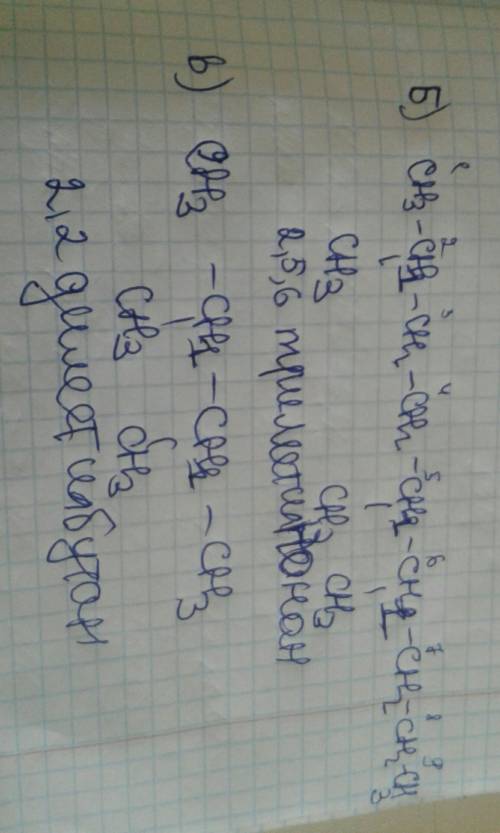 1 2 3 4 5 6 7 8 9
Б) CH3-CH-CH2-CH2-CH-CH-CH2-CH2-CH3
CH3 CH3 CH3
2,5,6 триметилнонан
в) CH3 -CH-CH-CH3
CH3 CH3
2,2 диметилбутан